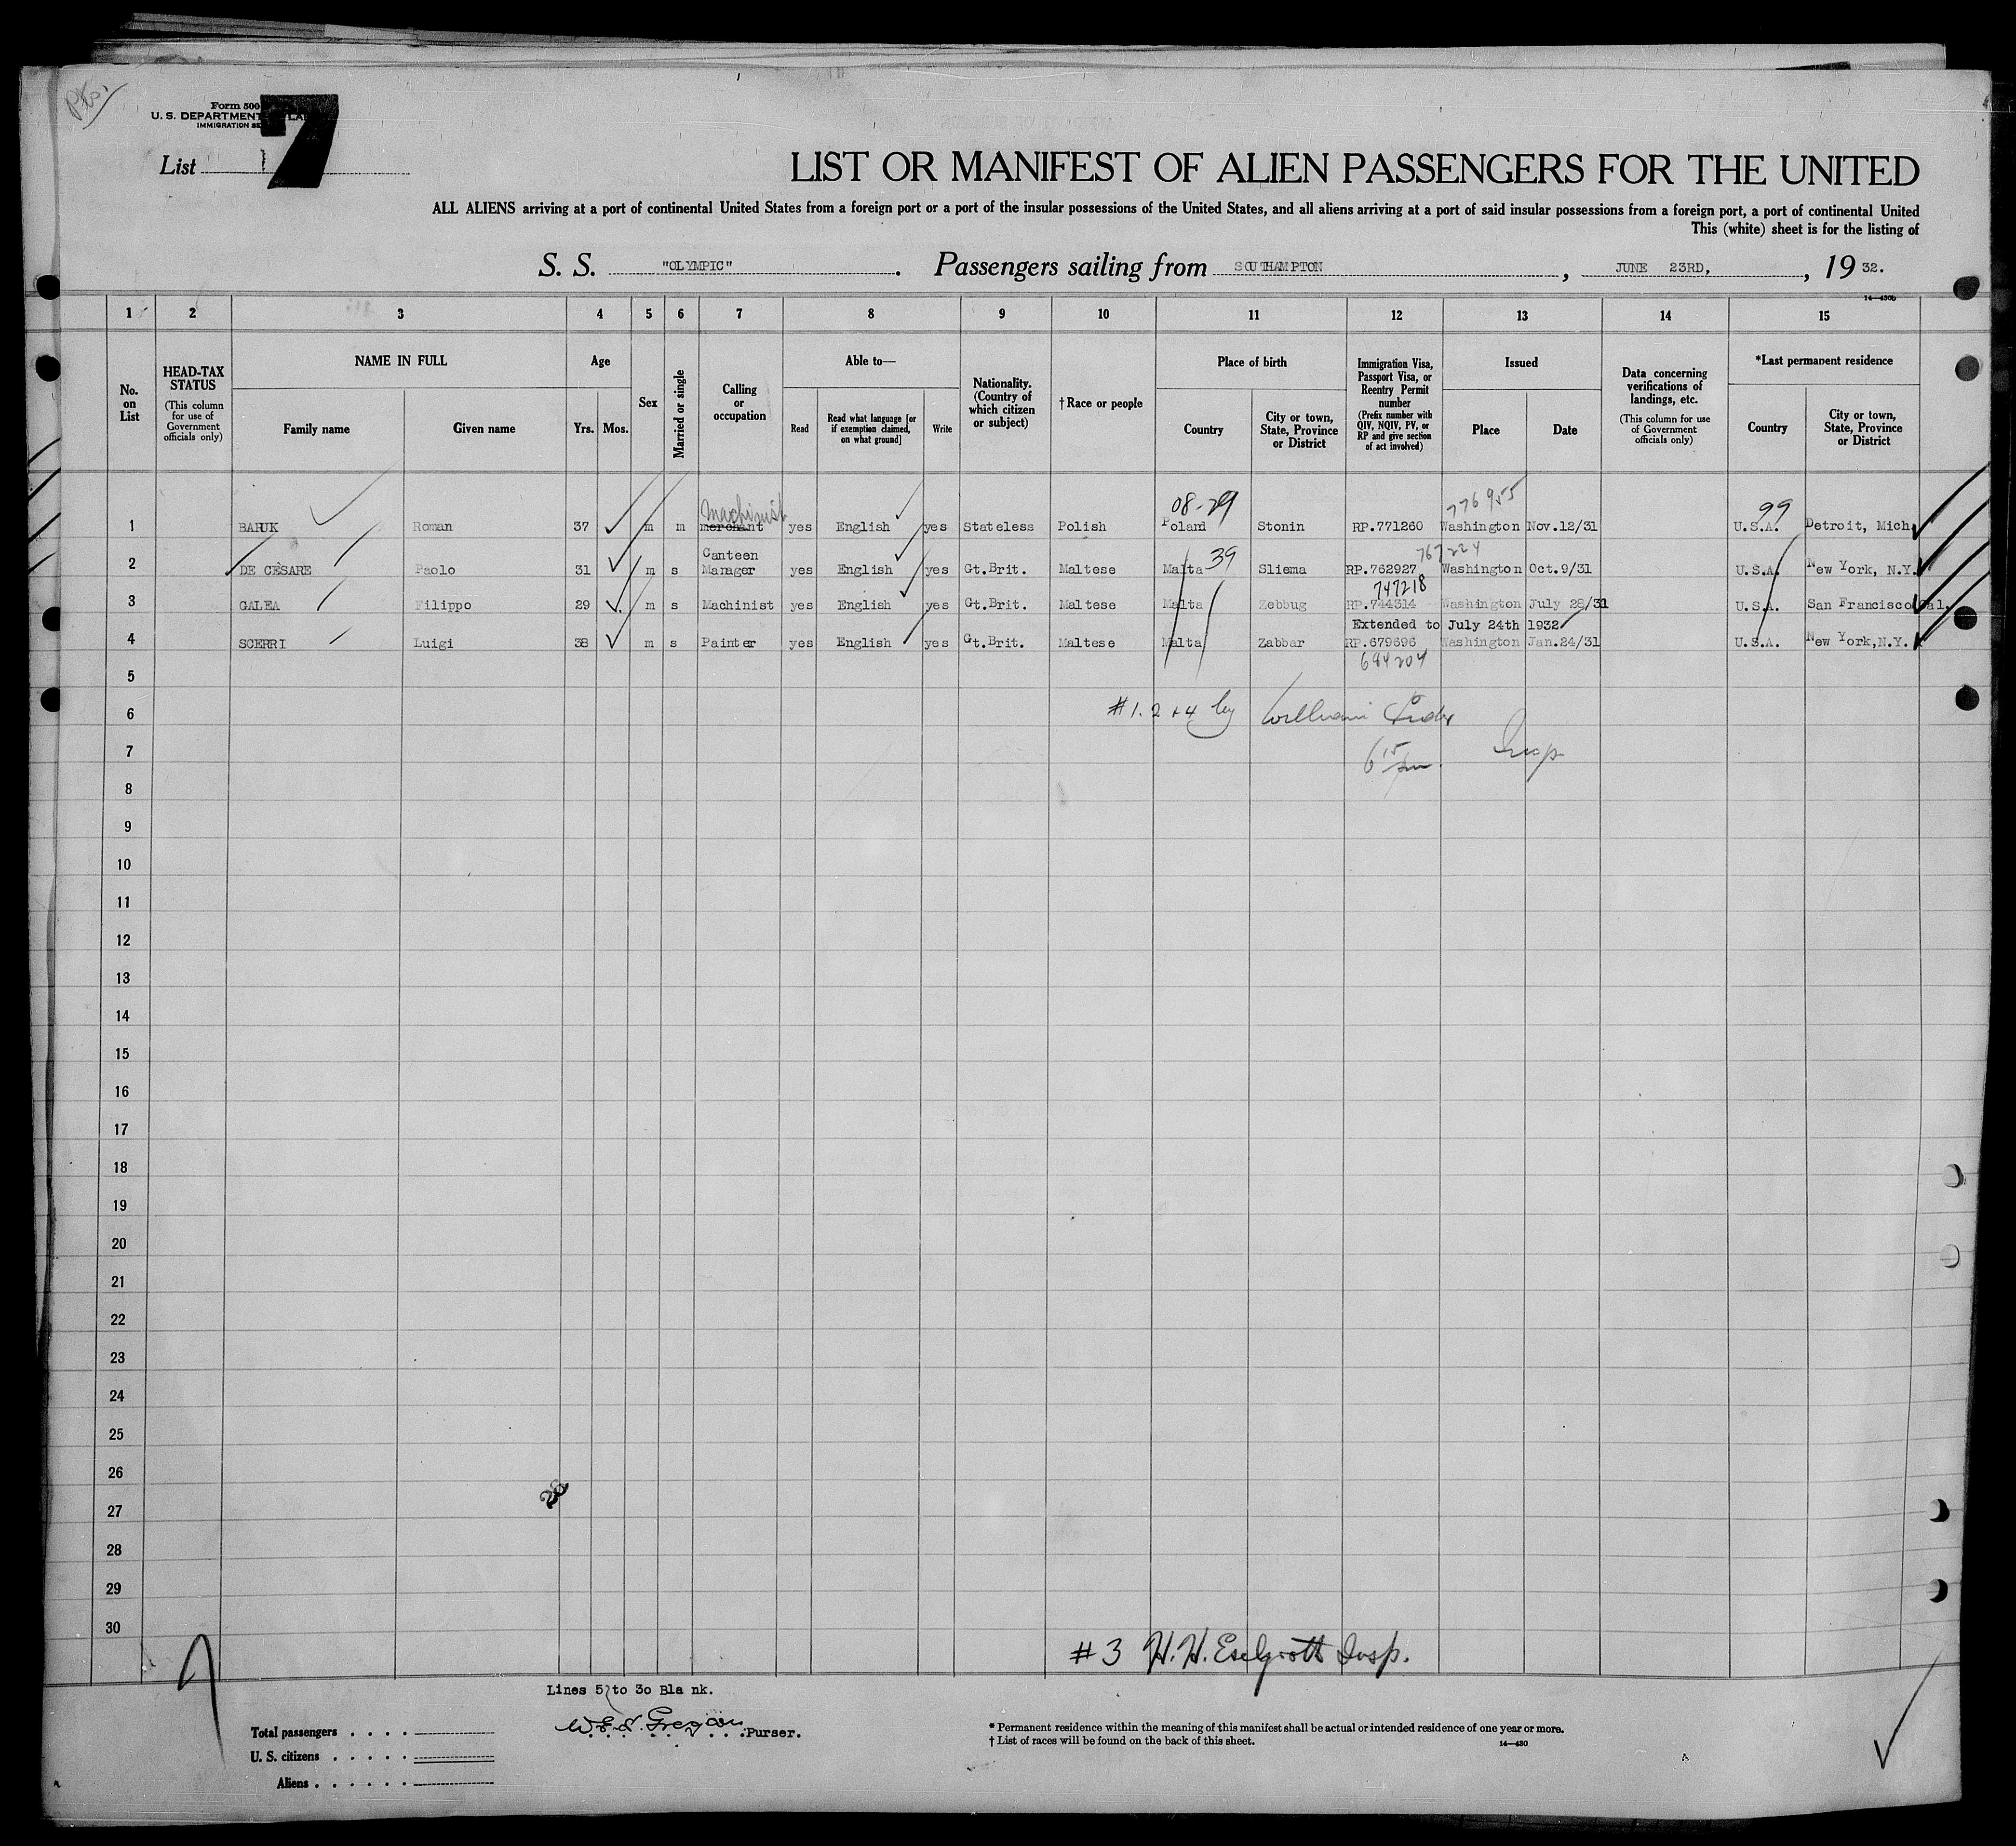 Form 500
U. S. DEPARTMENT
IMMIGRATION SE
7
List 1
LIST OR MANIFEST OF ALIEN PASSENGERS FOR THE UNITED
ALL ALIENS arriving at a port of continental United States from a foreign port or a port of the insular possessions of the United States, and all aliens arriving at a port of said insular possessions from a foreign port, a port of continental United
This (white) sheet is for the listing of
S. S. "OLYMPIC" . Passengers sailing from SOUTHAMPTON , JUNE 23RD, , 19 32.
14—430b
1 2 3 4 5 6 7 8 9 10 11 12 13 14 15
No. on List
HEAD-TAX STATUS (This column for use of Government officials only)
NAME IN FULL
Family name Given name
Age
Yrs. Mos.
Sex
Married or single
Calling or occupation
Able to—
Read Read what language [or if exemption claimed, on what ground] Write
Nationality. (Country of which citizen or subject)
†Race or people
Place of birth
Country City or town, State, Province or District
Immigration Visa, Passport Visa, or Reentry Permit number (Prefix number with QIV, NQIV, PV, or RP and give section of act involved)
Issued
Place Date
Data concerning verifications of landings, etc. (This column for use of Government officials only)
*Last permanent residence
Country City or town, State, Province or District
Machinist 08-29 776955 99
1 BARUK Roman 37 m m merchant yes English yes Stateless Polish Poland Stonin RP.771260 Washington Nov.12/31 U.S.A. Detroit, Mich.
Canteen 39 767224
2 DE CESARE Paolo 31 m s Manager yes English yes Gt.Brit. Maltese Malta Sliema RP.762927 Washington Oct.9/31 U.S.A. New York, N.Y.
747218
3 GALEA Filippo 29 m s Machinist yes English yes Gt.Brit. Maltese Malta Zebbug RP.744314 Washington July 28/31 U.S.A. San Francisco Cal.
Extended to July 24th 1932
4 SCERRI Luigi 38 m s Painter yes English yes Gt.Brit. Maltese Malta Zabbar RP.679696 Washington Jan.24/31 U.S.A. New York,N.Y.
684204
5
6 #1. 2 +4 by William
7 6 15 pm. Insp
8
9
10
11
12
13
14
15
16
17
18
19
20
21
22
23
24
25
26
27
28
29
30
#3 H.H. Insp.
Lines 5 to 30 Bla nk.
Total passengers
Purser.
U. S. citizens
Aliens
* Permanent residence within the meaning of this manifest shall be actual or intended residence of one year or more.
† List of races will be found on the back of this sheet.
14—430